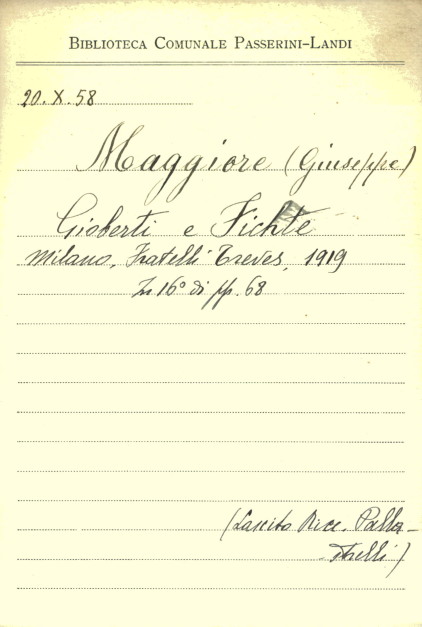 BIBLIOTECA COMUNALE PASSERINI-LANDI
20. X. 58
Maggiore (Giuseppe)
Gioberti e Fichte
Milano, Fratelli Treves, 1919
In 16° di pp. 68
(Lascito Palla-
strelli)